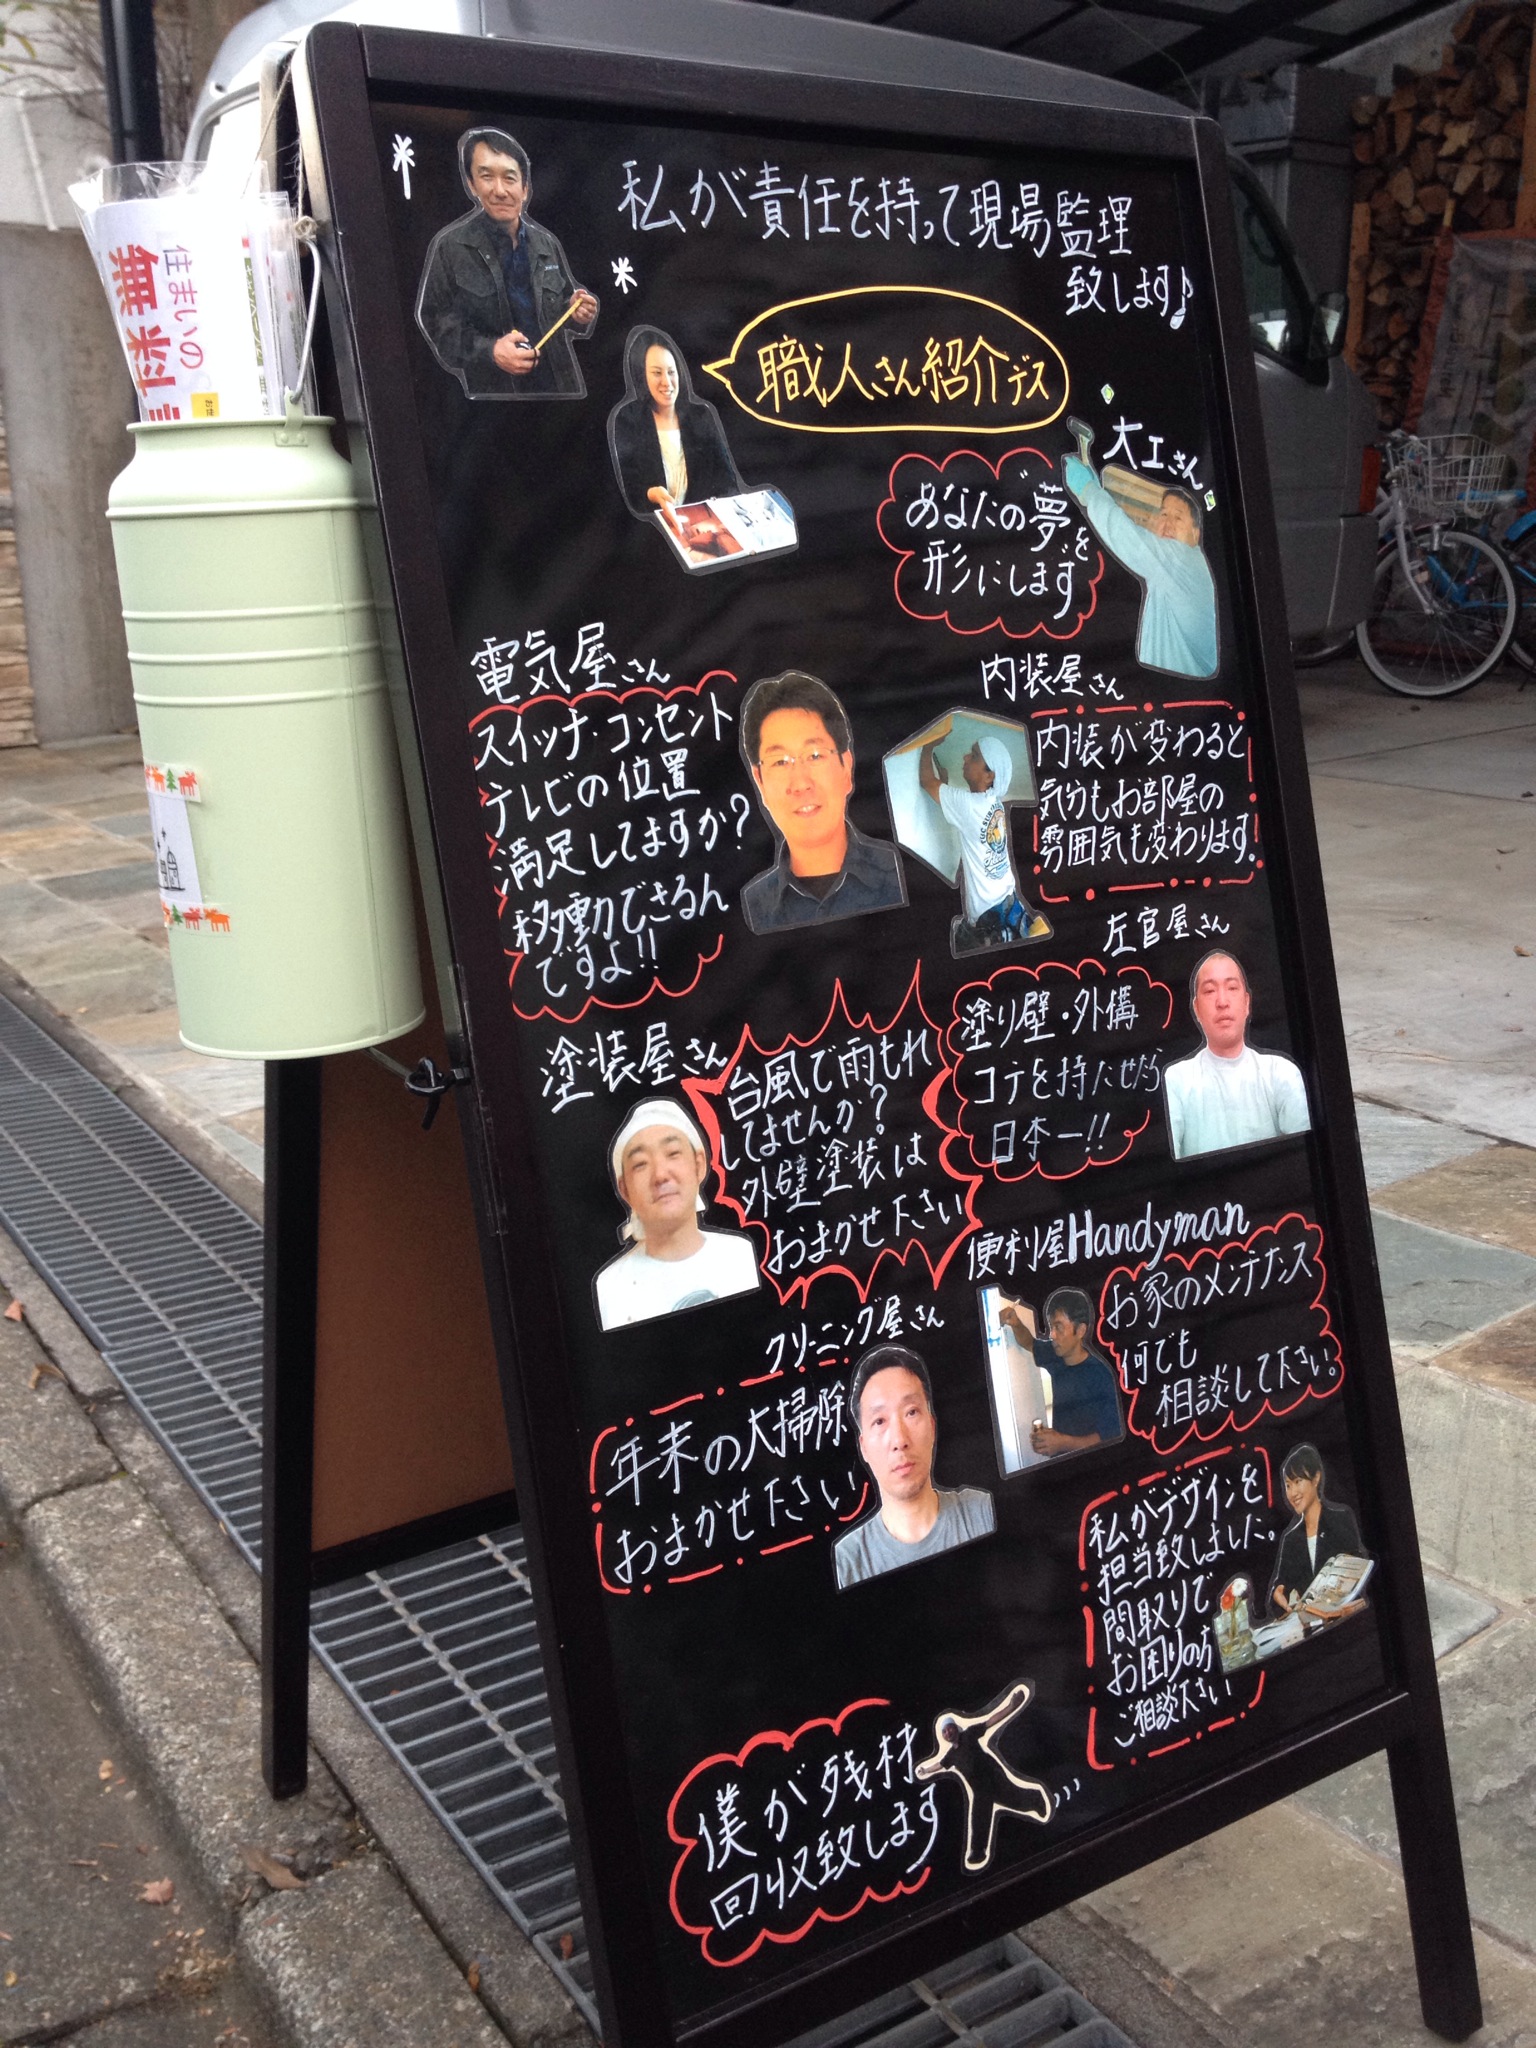 私が責任を持って現場監理
致します♪
職人さん紹介デス
大工さん
あなたの夢を
形にします
電気屋さん
スイッチ・コンセント
テレビの位置
満足してますか?
移動できるん
ですよ!!
内装屋さん
内装が変わると
気分もお部屋の
雰囲気も変わります!
左官屋さん
塗り壁・外構
コテを持たせたら
日本一!!
塗装屋さん
台風で雨もれ
してませんか?
外壁塗装は
おまかせ下さい
便利屋Handyman
お家のメンテナンス
何でも
相談して下さい。
クリーニング屋さん
年末の大掃除
おまかせ下さい
私がデザインを
担当致しました。
間取りで
お困りの方
ご相談下さい
僕が残材
回収致します
住まいの
無料